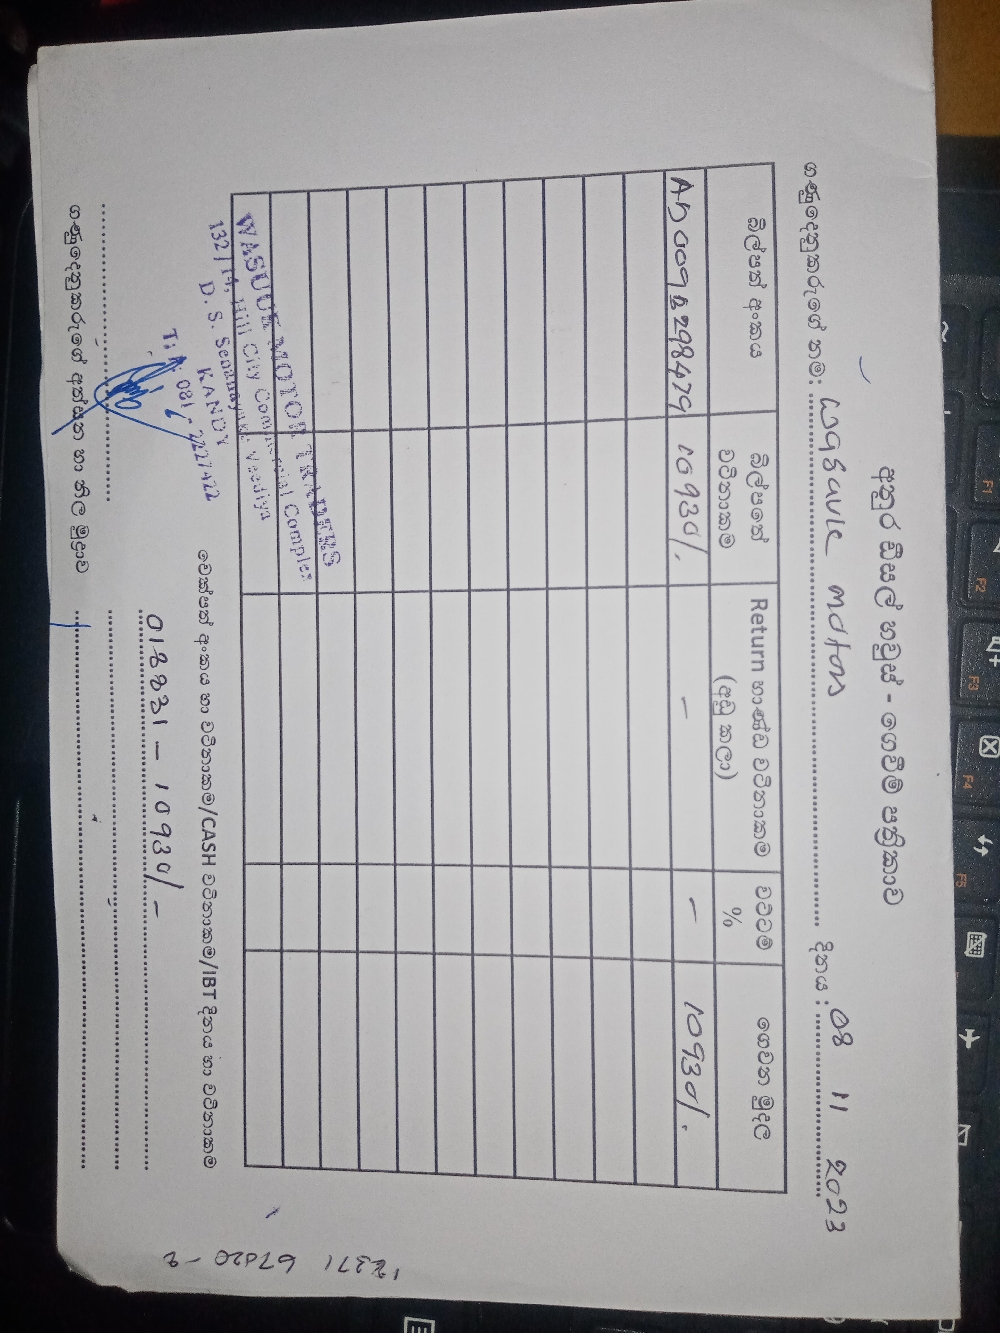 අනුර ඩීසල් හවුස් - ගෙවීම් පත්‍රිකාව
ගණුදෙනුකරුගේ නම: wasavle motors දිනය : 08 11 2023
බිල්පත් අංකය බිල්පතේ වටිනාකම Return භාණ්ඩ වටිනාකම (අඩු කලා) වට්ටම් % ගෙවන මුදල
AD009B298479 10930/. – – 10930/.
MOTOR TRADERS
132/14, Hill City Commercial Complex
D. S. Senanayake Veediya
KANDY
081 - 2227422
ගණුදෙනුකරුගේ අත්සන හා නිල මුද්‍රාව
චෙක්පත් අංකය හා වටිනාකම/CASH වටිනාකම/IBT දිනය හා වටිනාකම
018831 – 10930/-
12371 67020-2
F1
F2
F3
F4
F5